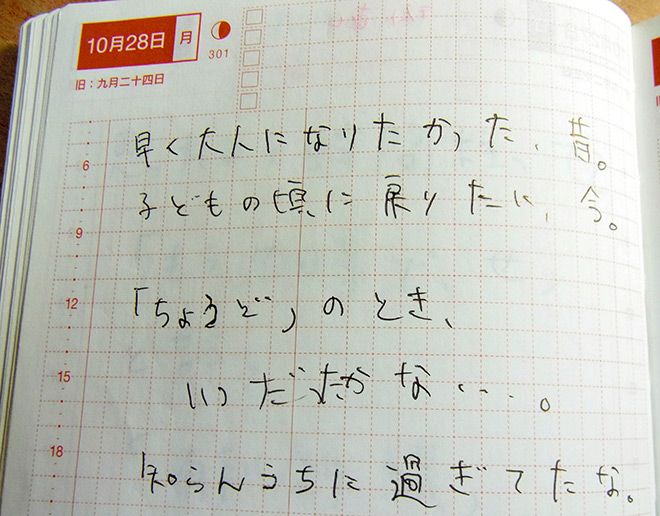 10月28日 月
301
旧：九月二十四日
早く大人になりたかった、昔。
子どもの頃に戻りたい、今。
「ちょうど」のとき、
いつだったかな・・・。
知らんうちに過ぎてたな。
6
9
12
15
18